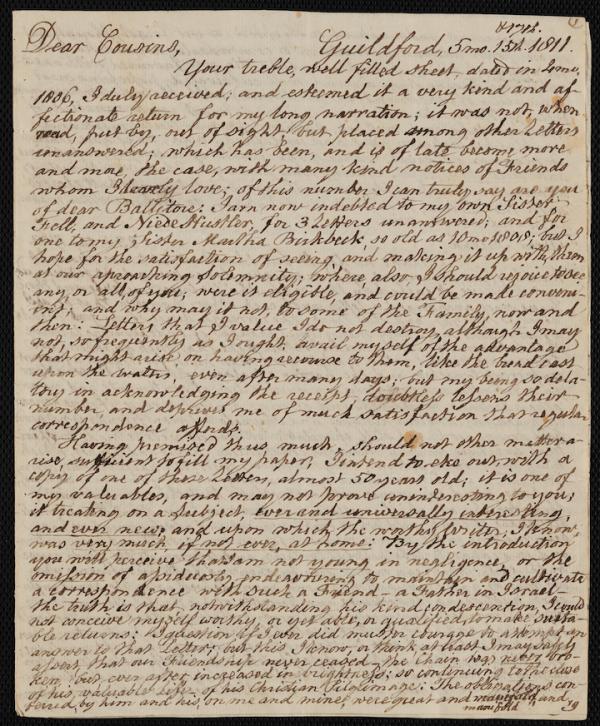 Dear Cousins, Guildford, 5 mo. 15th. 1811.
Your treble, well filled sheet, dated in 2 mo.
1806, I duly received; and esteemed it a very kind and af-
fectionate return for my long narration; it was not, when
read, put by, out of sight, but placed among other Letters
unanswered; which has been, and is of late become more
and more, the case, with many kind notices of Friends
whom I dearly love; of this number I can truly say are you
of dear Ballitore: I am now indebted to my own Sister
Fell, and Niece Hustler, for 3 Letters unanswered; and for
one to my Sister Martha Birkbeck, so old as 10 mo 1808; but I
hope for the satisfaction of seeing, and making it up with them
at our aproaching Solemnity; where also, I should rejoice to see
any, or all, of you; were it eligible, and could be made conveni-
ent; and why may it not, to some of the Family, now and
then: Letters that I value I do not destroy, although I may
not, so frequently as I ought, avail myself of the advantage
that might arise on having recourse to them, like the bread cast
upon the waters, even after many days; but my being so dila-
tory in acknowledging the receipt, doubtless lessens their
number, and deprives me of much satisfaction that regular
correspondence affords.
Having premised thus much, should not other matter a-
rise, sufficient to fill my paper, I intend to eke out, with a
copy of one of those Letters, almost 50 years old; it is one of
my valuables, and may not prove uninteresting to you;
it treating on a subject, ever and universally interesting,
and ever new; and upon which the worthy writer, I know,
was very much if not ever, at home: By the introduction
you will perceive that I am not young in negligence, or the
omission of assiduously endeavouring to maintain and cultivate
a correspondence with such a Friend - a Father in Israel -
the truth is that, notwithstanding his kind condescention, I could
not conceive myself worthy, or yet able, or qualified, to make suita-
ble returns: I question if I ever did muster courage to attempt an
answer to that Letter; but this I know, or think at least I may safely
assert, that our Friendship never ceased - the chain was never bro-
ken, but ever after increased in brightness; so continuing to the close
of his valuable life, of his Christian Pilgrimage: The obligations con-
ferred by him and his, on me and mine, were great and manifold, and
manifold